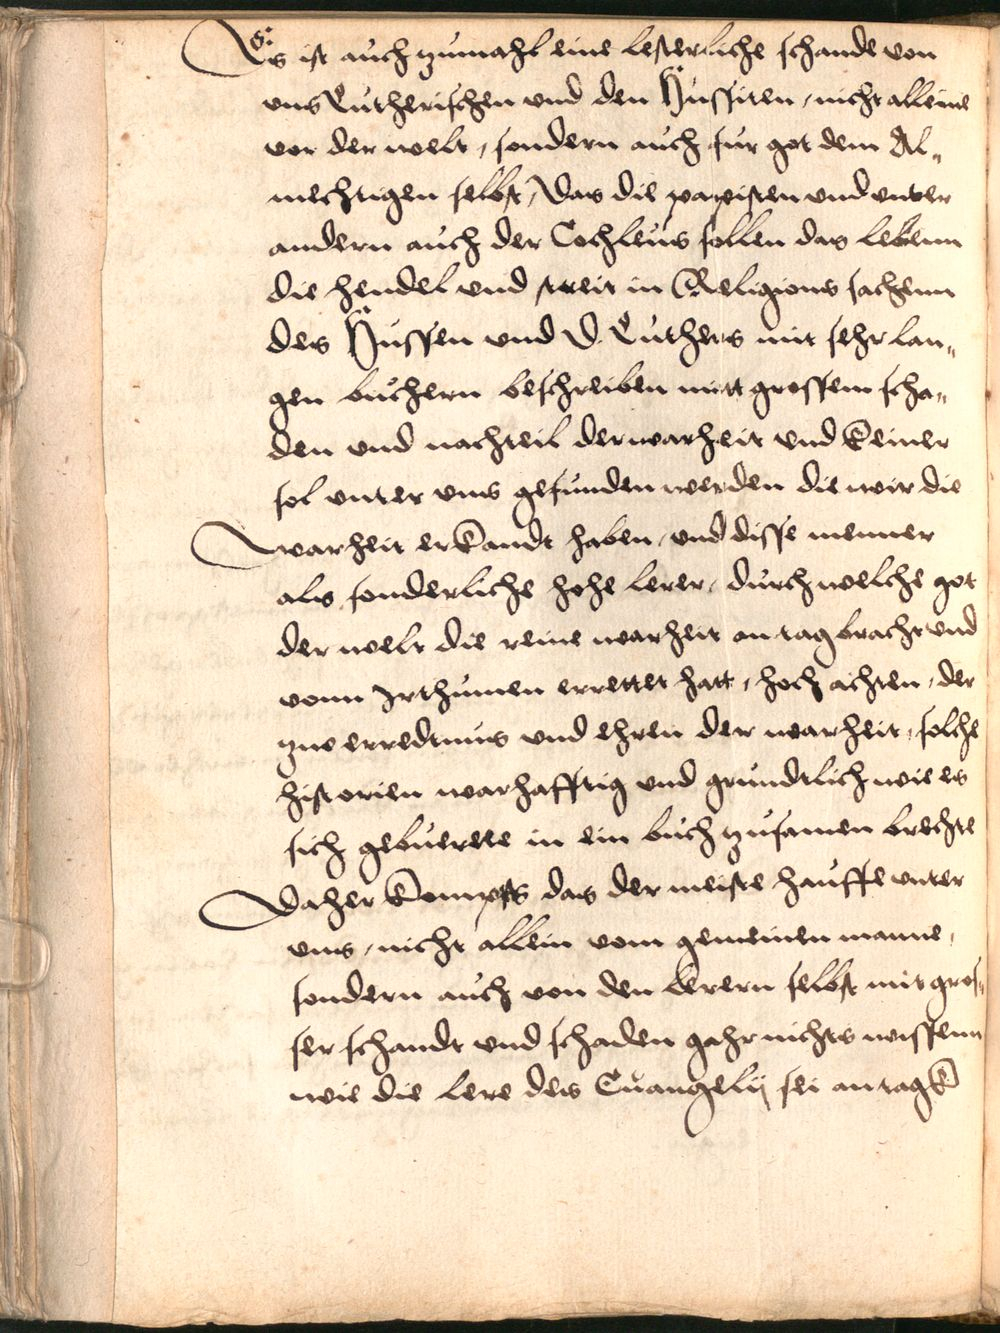 Es ist auch zumahl eine lesterliche schande von
uns Lutherischen und den Hussiten, nicht alleine
vor der welt, sondern auch fur got dem Al„
mechtigen selbst, Das die papisten und unter
andern auch der Cochleus sollen das lebenn
die hendel und streit in Religions sachenn
des Hussen und D. Luthers mit sehr lan„
gen buchern beschreiben mitt grossem scha„
den und nachteil der warheit und keiner
sol unter uns gefunden werden die wir die
warheit erkandt haben, und disse menner
als sonderliche hohe lerer, durch welche got
der welt die reine warheit an tag bracht und
vonn Irthumen errettet hatt, hoch achten, der
zuo erredtnus und ehren der warheit, solche
historien warhafftig und grundtlich wie es
sich gebuerete in ein buch zusamen brechte
Daher kompts das der meiste hauffe unter
uns, nicht allein vom gemeinen manne,
sondern auch von den lerern selbst mit gros„
ser schandt und schaden gahr nichts wissenn
wie die lere des Euangelij sei an tagk